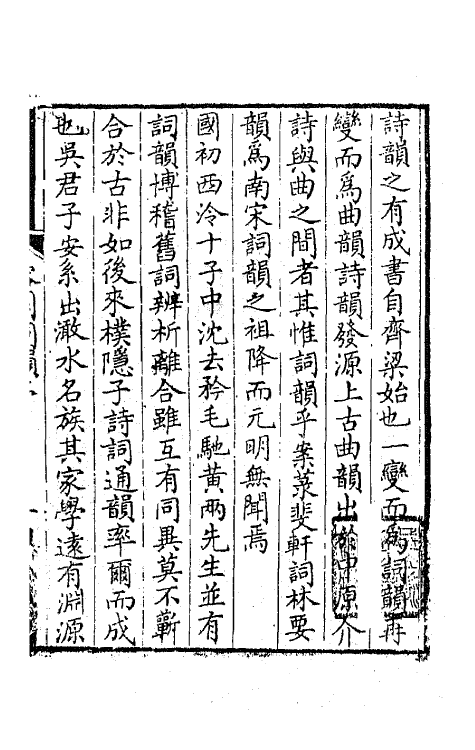 詩韻之有成書自齊梁始也一變而為詞韻再
變而爲曲韻詩韻發源上古曲韻出於中原介
詩與曲之間者其惟詞韻乎案菉斐軒詞林要
韻爲南宋詞韻之祖降而元明無聞焉
國初西泠十子中沈去矜毛馳黃兩先生並有
詞韻博稽舊詞辨析離合雖互有同異莫不蘄
合於古非如後來樸隱子詩詞通韻率爾而成
也吳君子安系出澉水名族其家學遠有淵源